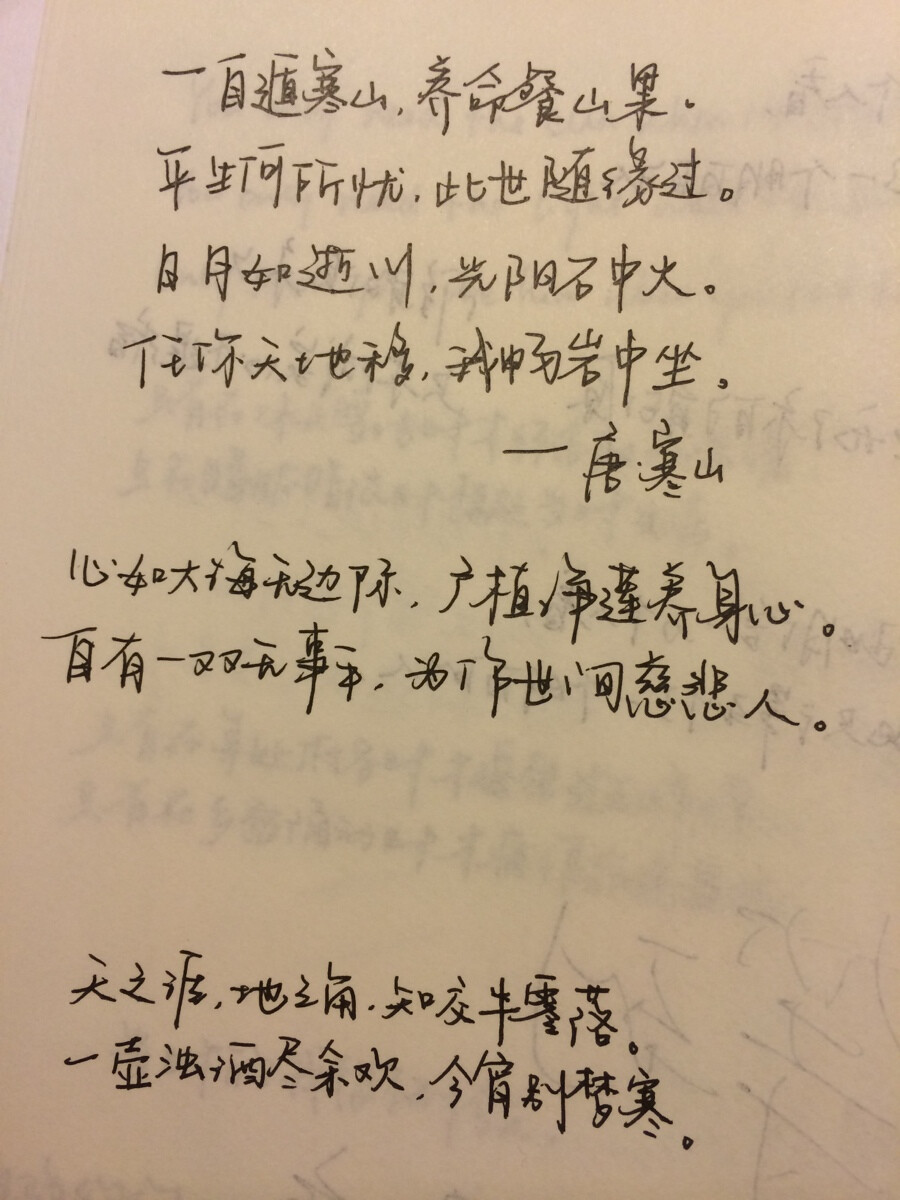 一自遁寒山，养命餐山果。
平生何所忧，此世随缘过。
日月如逝川，光阴石中火。
任你天地移，我畅岩中坐。
— 唐·寒山
心如大海无边际，广植净莲养身心。
自有一双无事手，为作世间慈悲人。
天之涯，地之角，知交半零落。
一壶浊酒尽余欢，今宵别梦寒。